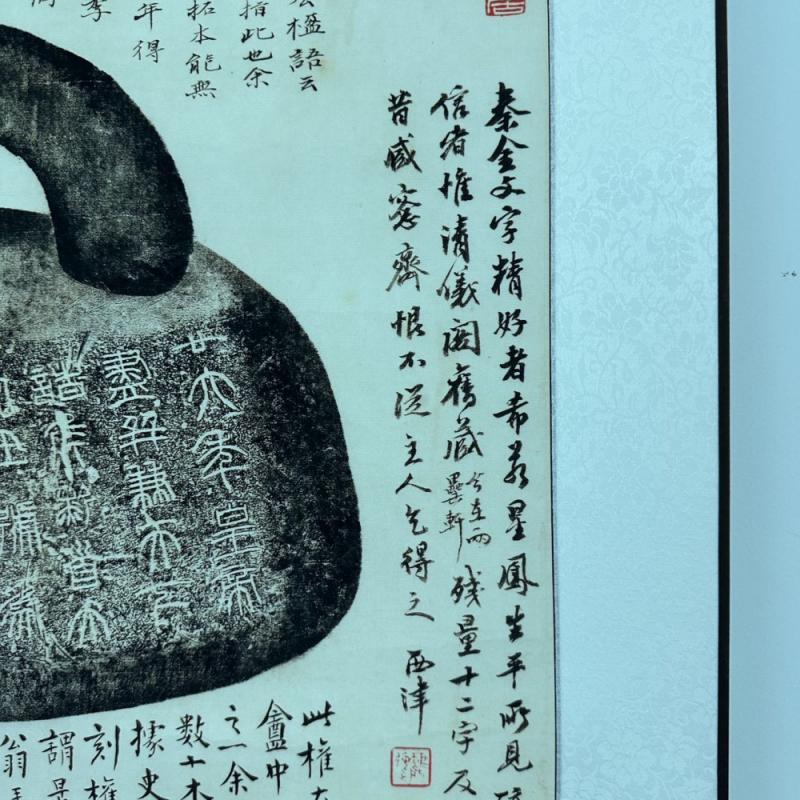 秦金文字精好者希若星鳳生平所見
信者惟清儀閣舊藏今在兩罍軒殘量十二字及
昔臧窓齋恨不從主人乞得之 西津
楹語云
指此也余
拓本能無
年得
季
廿六年皇帝
盡并兼天下
諸矦黔首大
此權
盦中
之一余
數十木
據史
刻權
謂是
翁